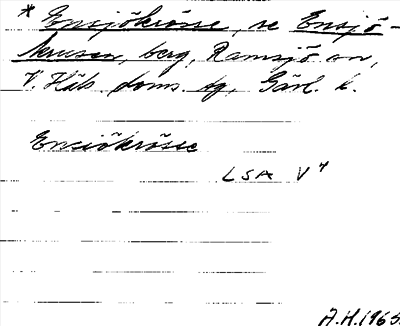 * Ensjökröse, se Ensjö-
krusen, berg, Ramsjö sn,
V. Häls. doms. tg, Gävl. l.
Ensiökröse
LSA V 4
A.H. 1965